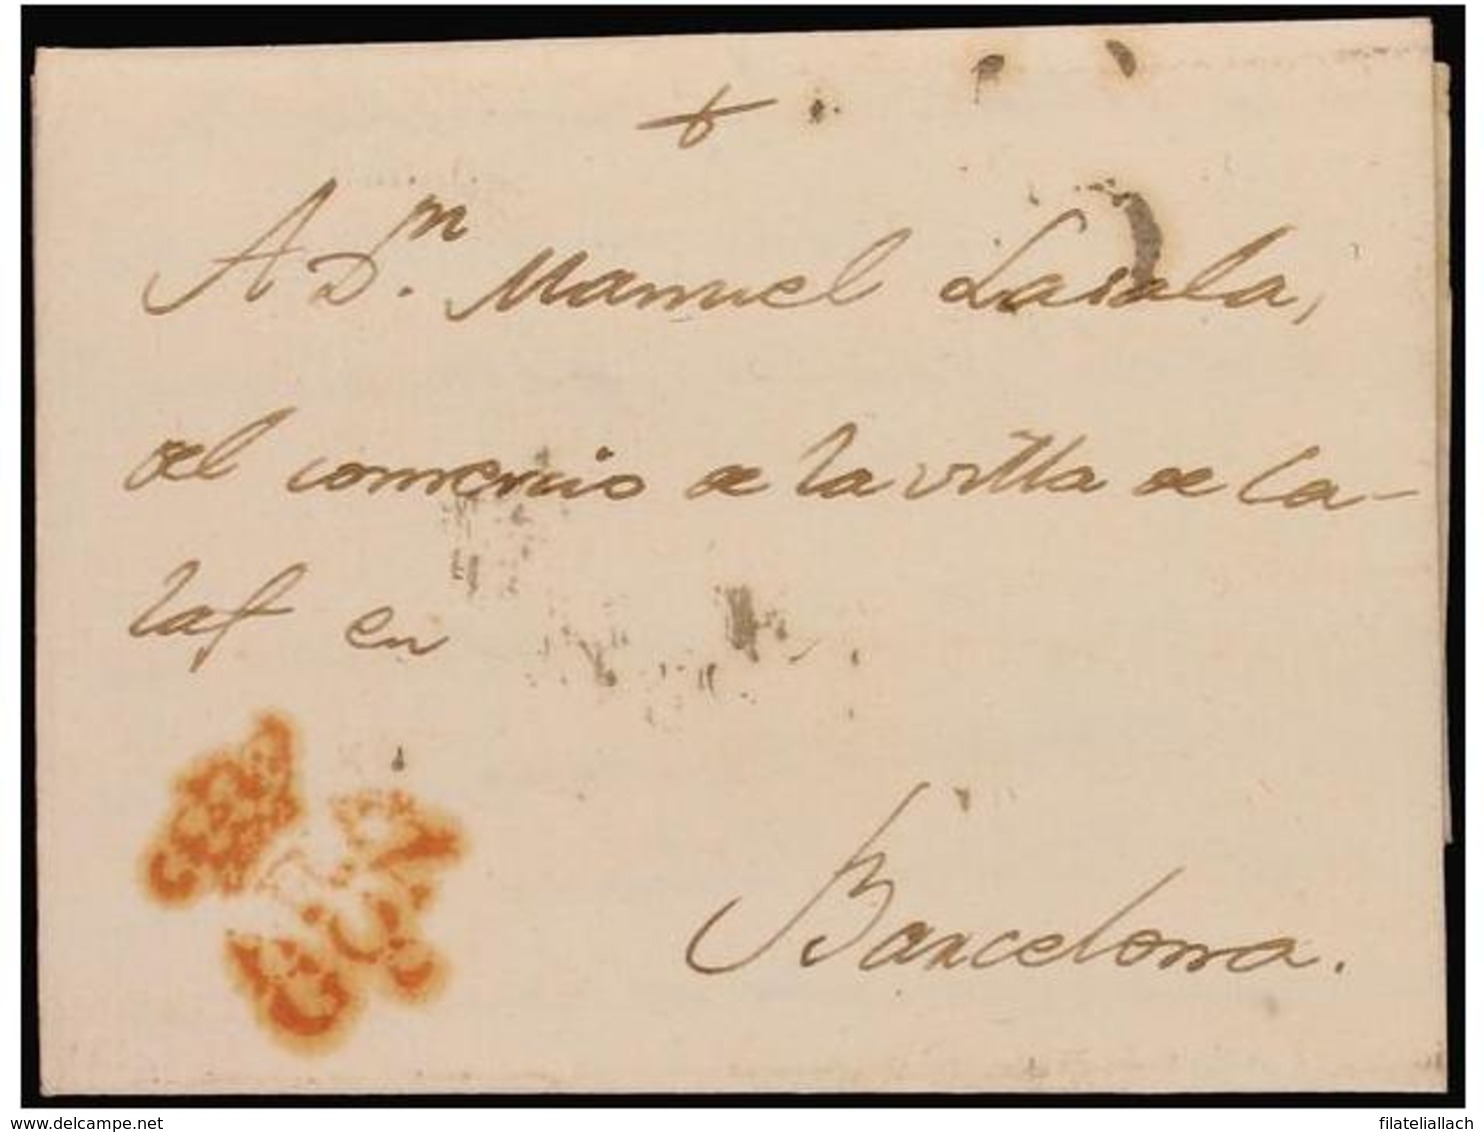 A Dn. Manuel Lasala,
del comercio de la villa de Ca-
laf en
Barcelona.
www.delcampe.net
filateliallach